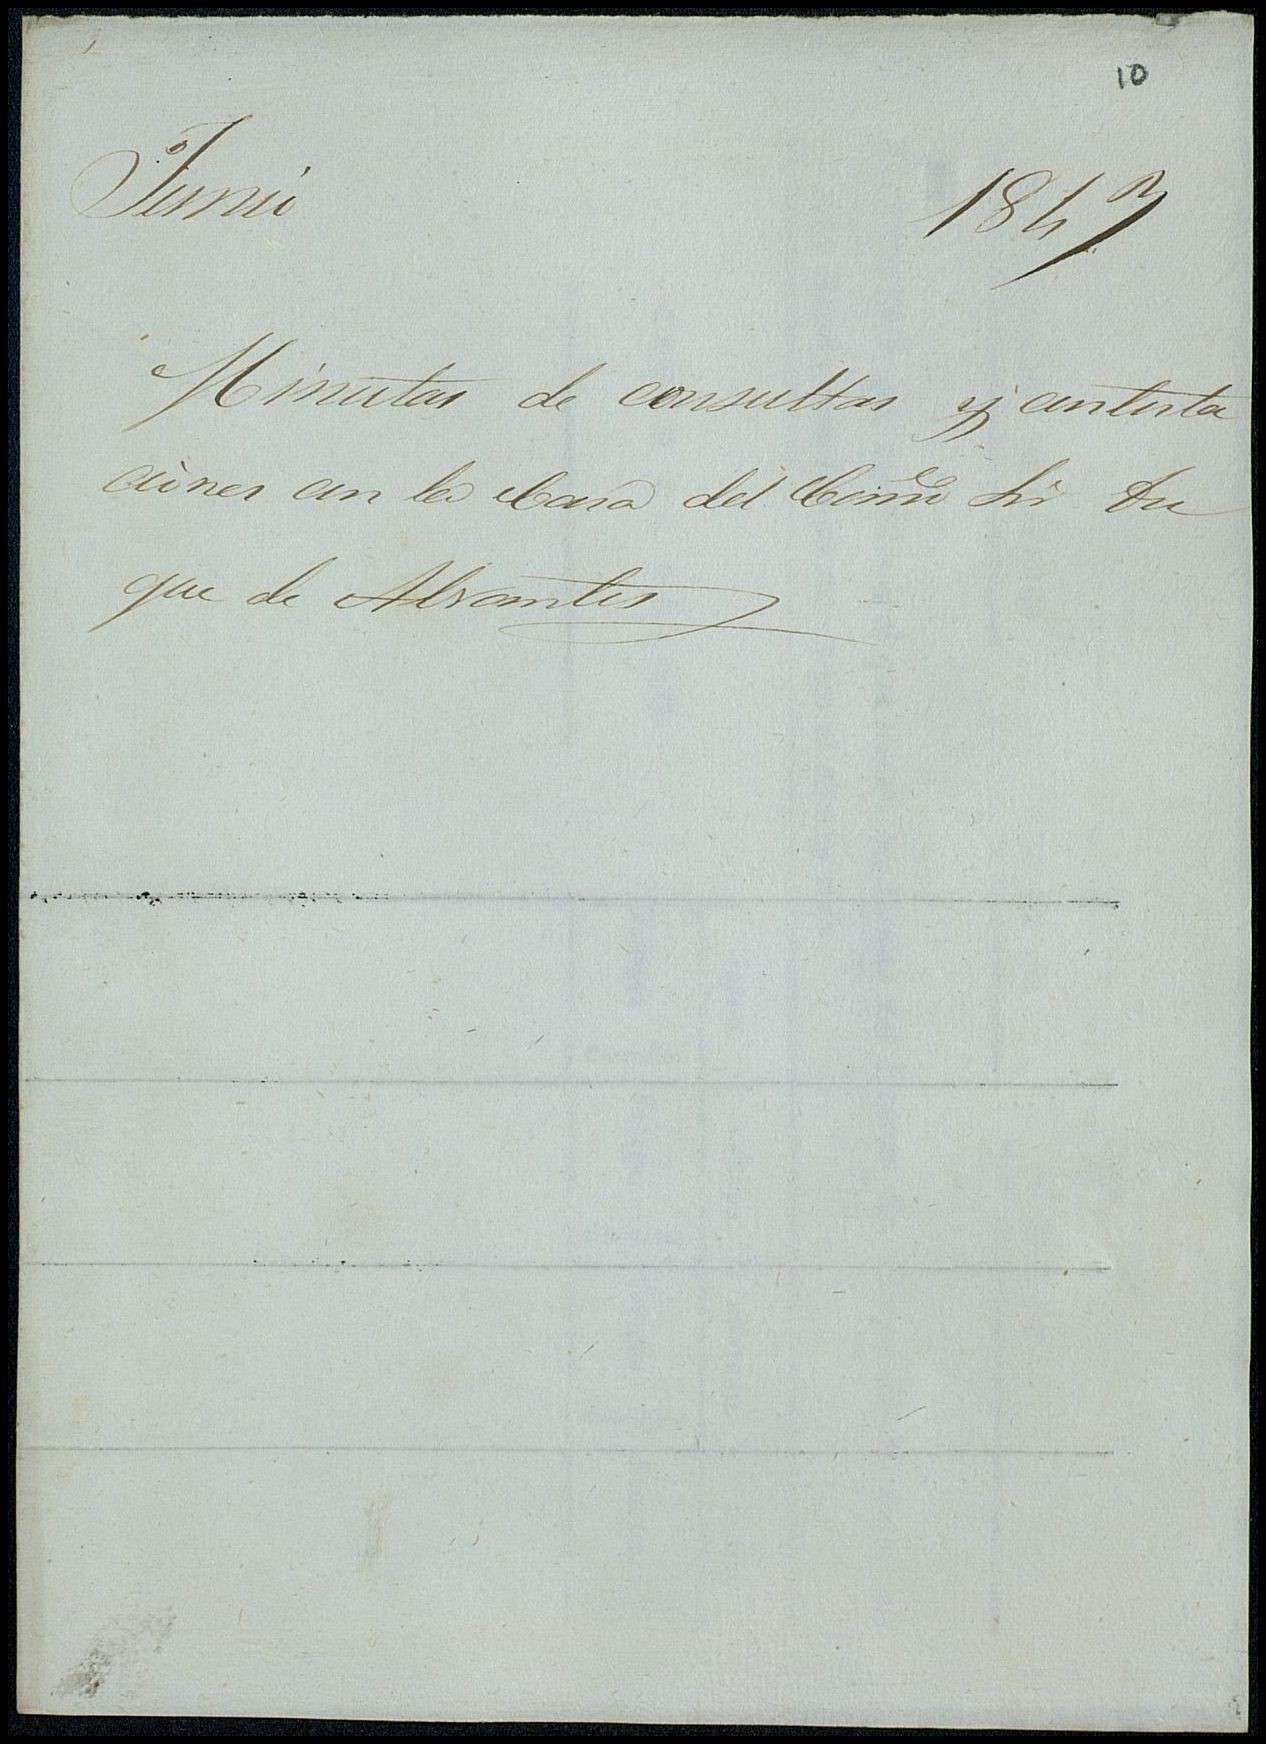 10
Junio 1847
Minutas de consultas y contesta
ciones con la Casa del Exmo Sr Du
que de Abrantes